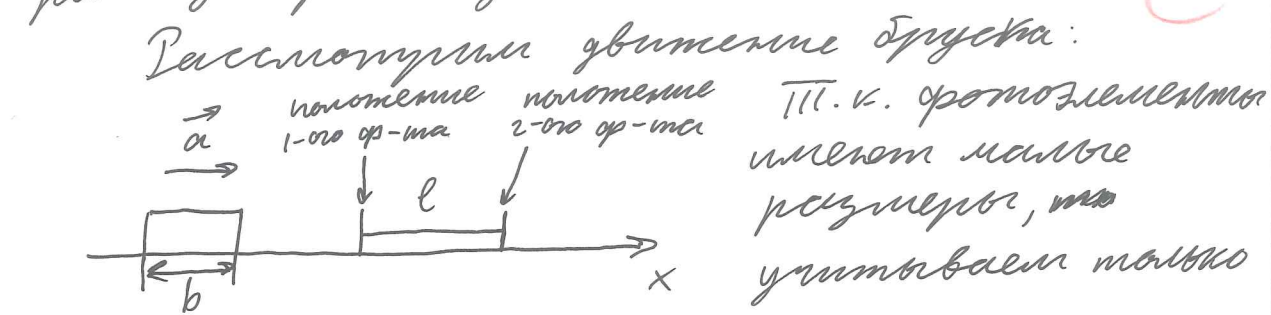 Рассмотрим движение бруска:
a
положение
1-ого ф-та
положение
2-ого ф-та
l
b
x
Т.к. фотоэлементы
имеют малые
размеры,
учитываем только